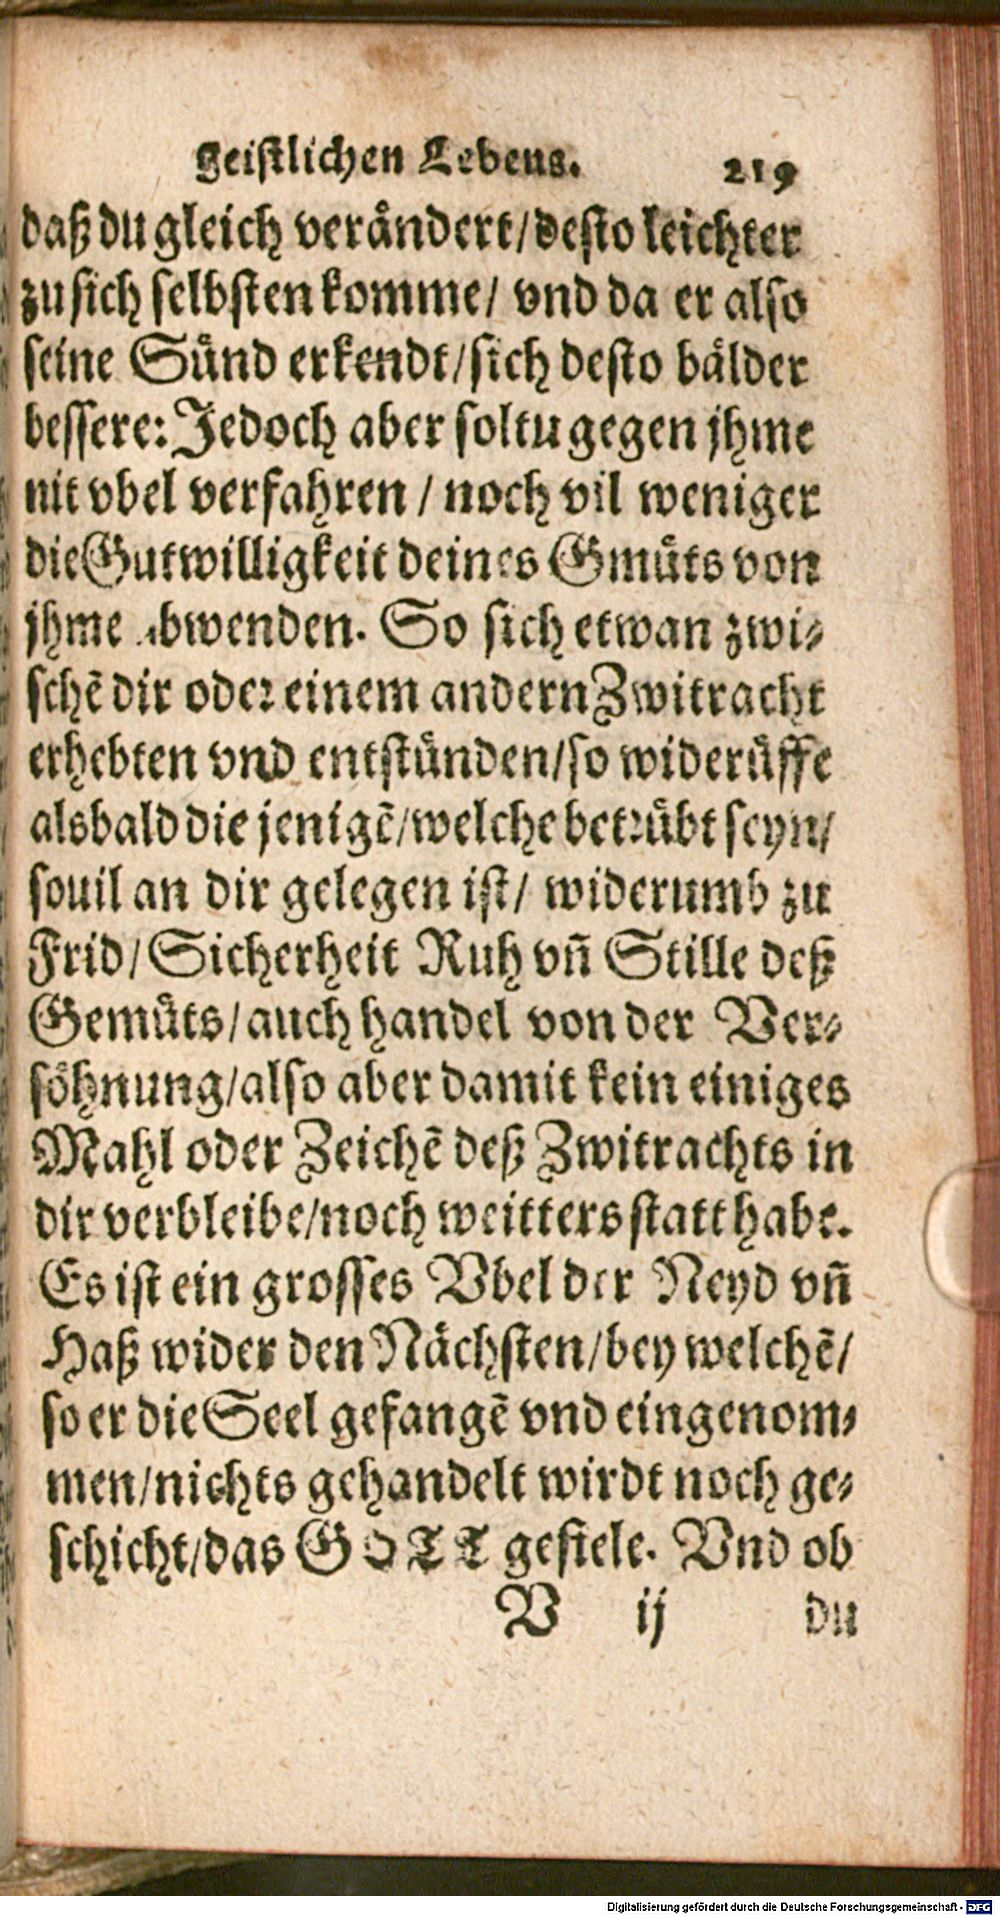 geistlichen Lebens. 219
daß du gleich verändert/ desto leichter
zu sich selbsten komme/ vnd da er also
seine Sünd erkendt/ sich desto bälder
bessere: Jedoch aber soltu gegen jhme
nit vbel verfahren / noch vil weniger
die Gutwilligkeit deines Gmüts von
jhme abwenden. So sich etwan zwi-
schẽ dir oder einem andern Zwitracht
erhebten vnd entstünden/ so widerüffe
alsbald die jenigẽ/ welche betrübt seyn/
souil an dir gelegen ist/ widerumb zu
Frid/ Sicherheit Ruh vñ Stille deß
Gemüts/ auch handel von der Ver-
söhnung/ also aber damit kein einiges
Mahl oder Zeichẽ deß Zwitrachts in
dir verbleibe/ noch weitters statt habe.
Es ist ein grosses Vbel der Neyd vñ
Haß wider den Nächsten/ bey welchẽ/
so er die Seel gefangẽ vnd eingenom-
men/ nichts gehandelt wirdt noch ge-
schicht/ das GOTT gefiele. Vnd ob
V ij du
Digitalisierung gefördert durch die Deutsche Forschungsgemeinschaft - DFG